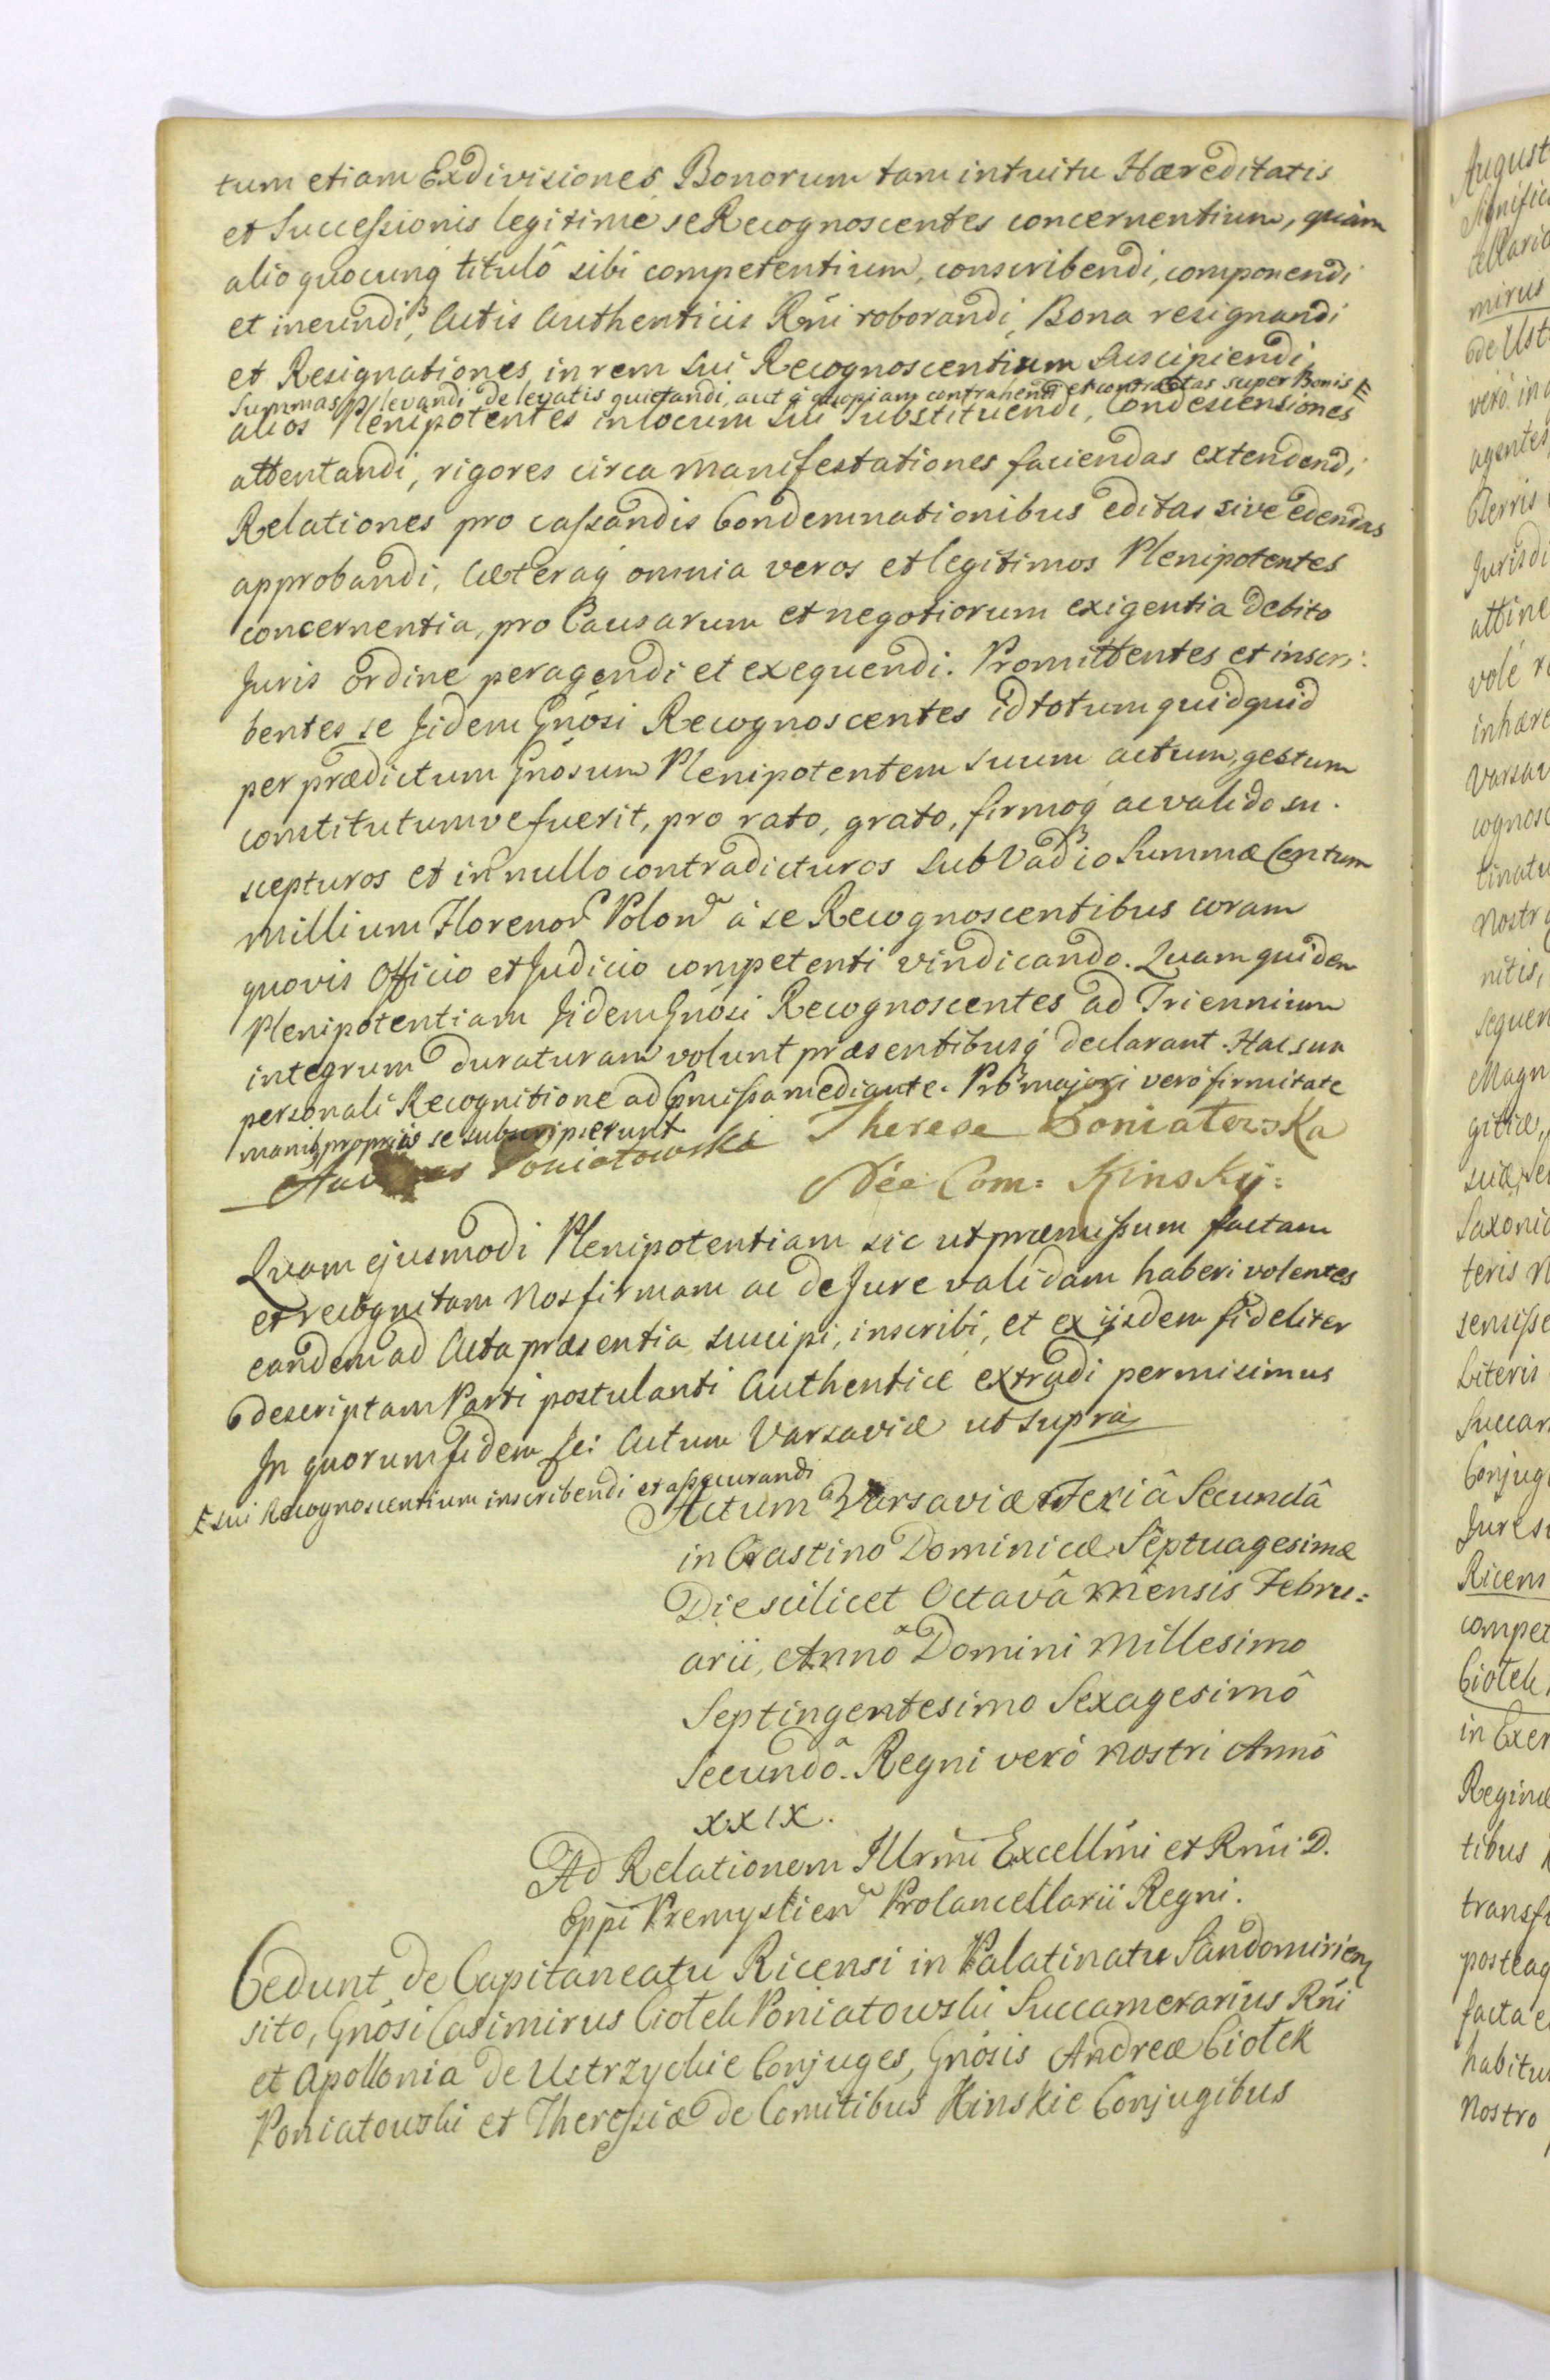 tum etiam Exdivisiones Bonorum tam intuitu Hæreditatis
et Successionis legitimé se Recognoscentes concernentium, quàm
alio quocunq titulô sibi competentium, conscribendi, componendi
et ineundi, Actis Authenticis Rñi roborandi, Bona resignandi
et Resignationes in rem sui Recognoscentium suscipiendi,
Summas levandi de levatis quietandi, aut à quopiam contrahendi et contractas super Bonis E
alios Plenipotentes in locum sui substituendi, Condescensiones
attentandi, rigores circa manifestationes faciendas extendendi,
Relationes pro cassandis Condemnationibus editas sive edendas
approbandi, Cæteraq omnia veros et legitimos Plenipotentes
concernentia, pro Causarum et negotiorum exigentia debito
Juris ordine peragendi et exequendi. Promittentes et inscri:
bentes se Jidem Gnosi Recognoscentes id totum quidquid
per prædictum Gnosum Plenipotentem suum actum, gestum
constitutumve fuerit, pro rato, grato, firmoq ac valido su.
scepturos et in nullo contradicturos sub Vadio Summæ Centum
millium Florenor Polon à se Recognoscentibus coram
quovis Officio et Judicio competenti vindicando. Quam quidem
Plenipotentiam Jidem Gnosi Recognoscentes ad Triennium
integrum duraturam volunt præsentibusq declarant. Hac sua
personali Recognitione ad præmissa mediante. Pro majori veró firmitate
manib propriis se subscripserunt
Andreas Poniatowski Therese Poniatowska
Née Com: Kinskÿ:
Quam ejusmodi Plenipotentiam sic ut præmissum factam
et recognitam Nos firmam ac de Jure validam haberi volentes
eandem ad Acta præsentia suscipi, inscribi, et ex ijsdem fideliter
descriptam Parti postulanti Authenticé extradi permisimus
In quorum fidem &c: Actum Varsaviæ ut supra
E sui Recognoscentium inscribendi et assecurandi
Actum Varsaviæ Feriâ Secundâ
in Crastino Dominicæ Septuagesimæ
Die scilicet Octavâ Mensis Febru:
arii, Annô Domini Millesimo
Septingentesimo Sexagesimô
Secundô. Regni veró Nostri Annô
XXIX.
Ad Relationem Illrmi Excellmi et Rmi D.
Eppi Premyslien Procancellarii Regni.
Cedunt de Capitaneatu Ricensi in Palatinatu Sandomirien
sito, Gnosi Casimirus Ciołek Poniatowski Succamerarius Rñi
et Apollonia de Ustrzyckie Conjuges, Gnosis Andreæ Ciołek
Poniatowski et Theressiæ de Comitibus Kinskie Conjugibus